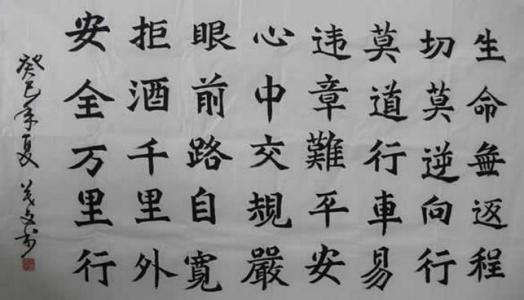 生命無返程
切莫逆向行
莫道行車易
违章難平安
心中交規嚴
眼前路自寬
拒酒千里外
安全万里行
癸巳年夏 茂文書